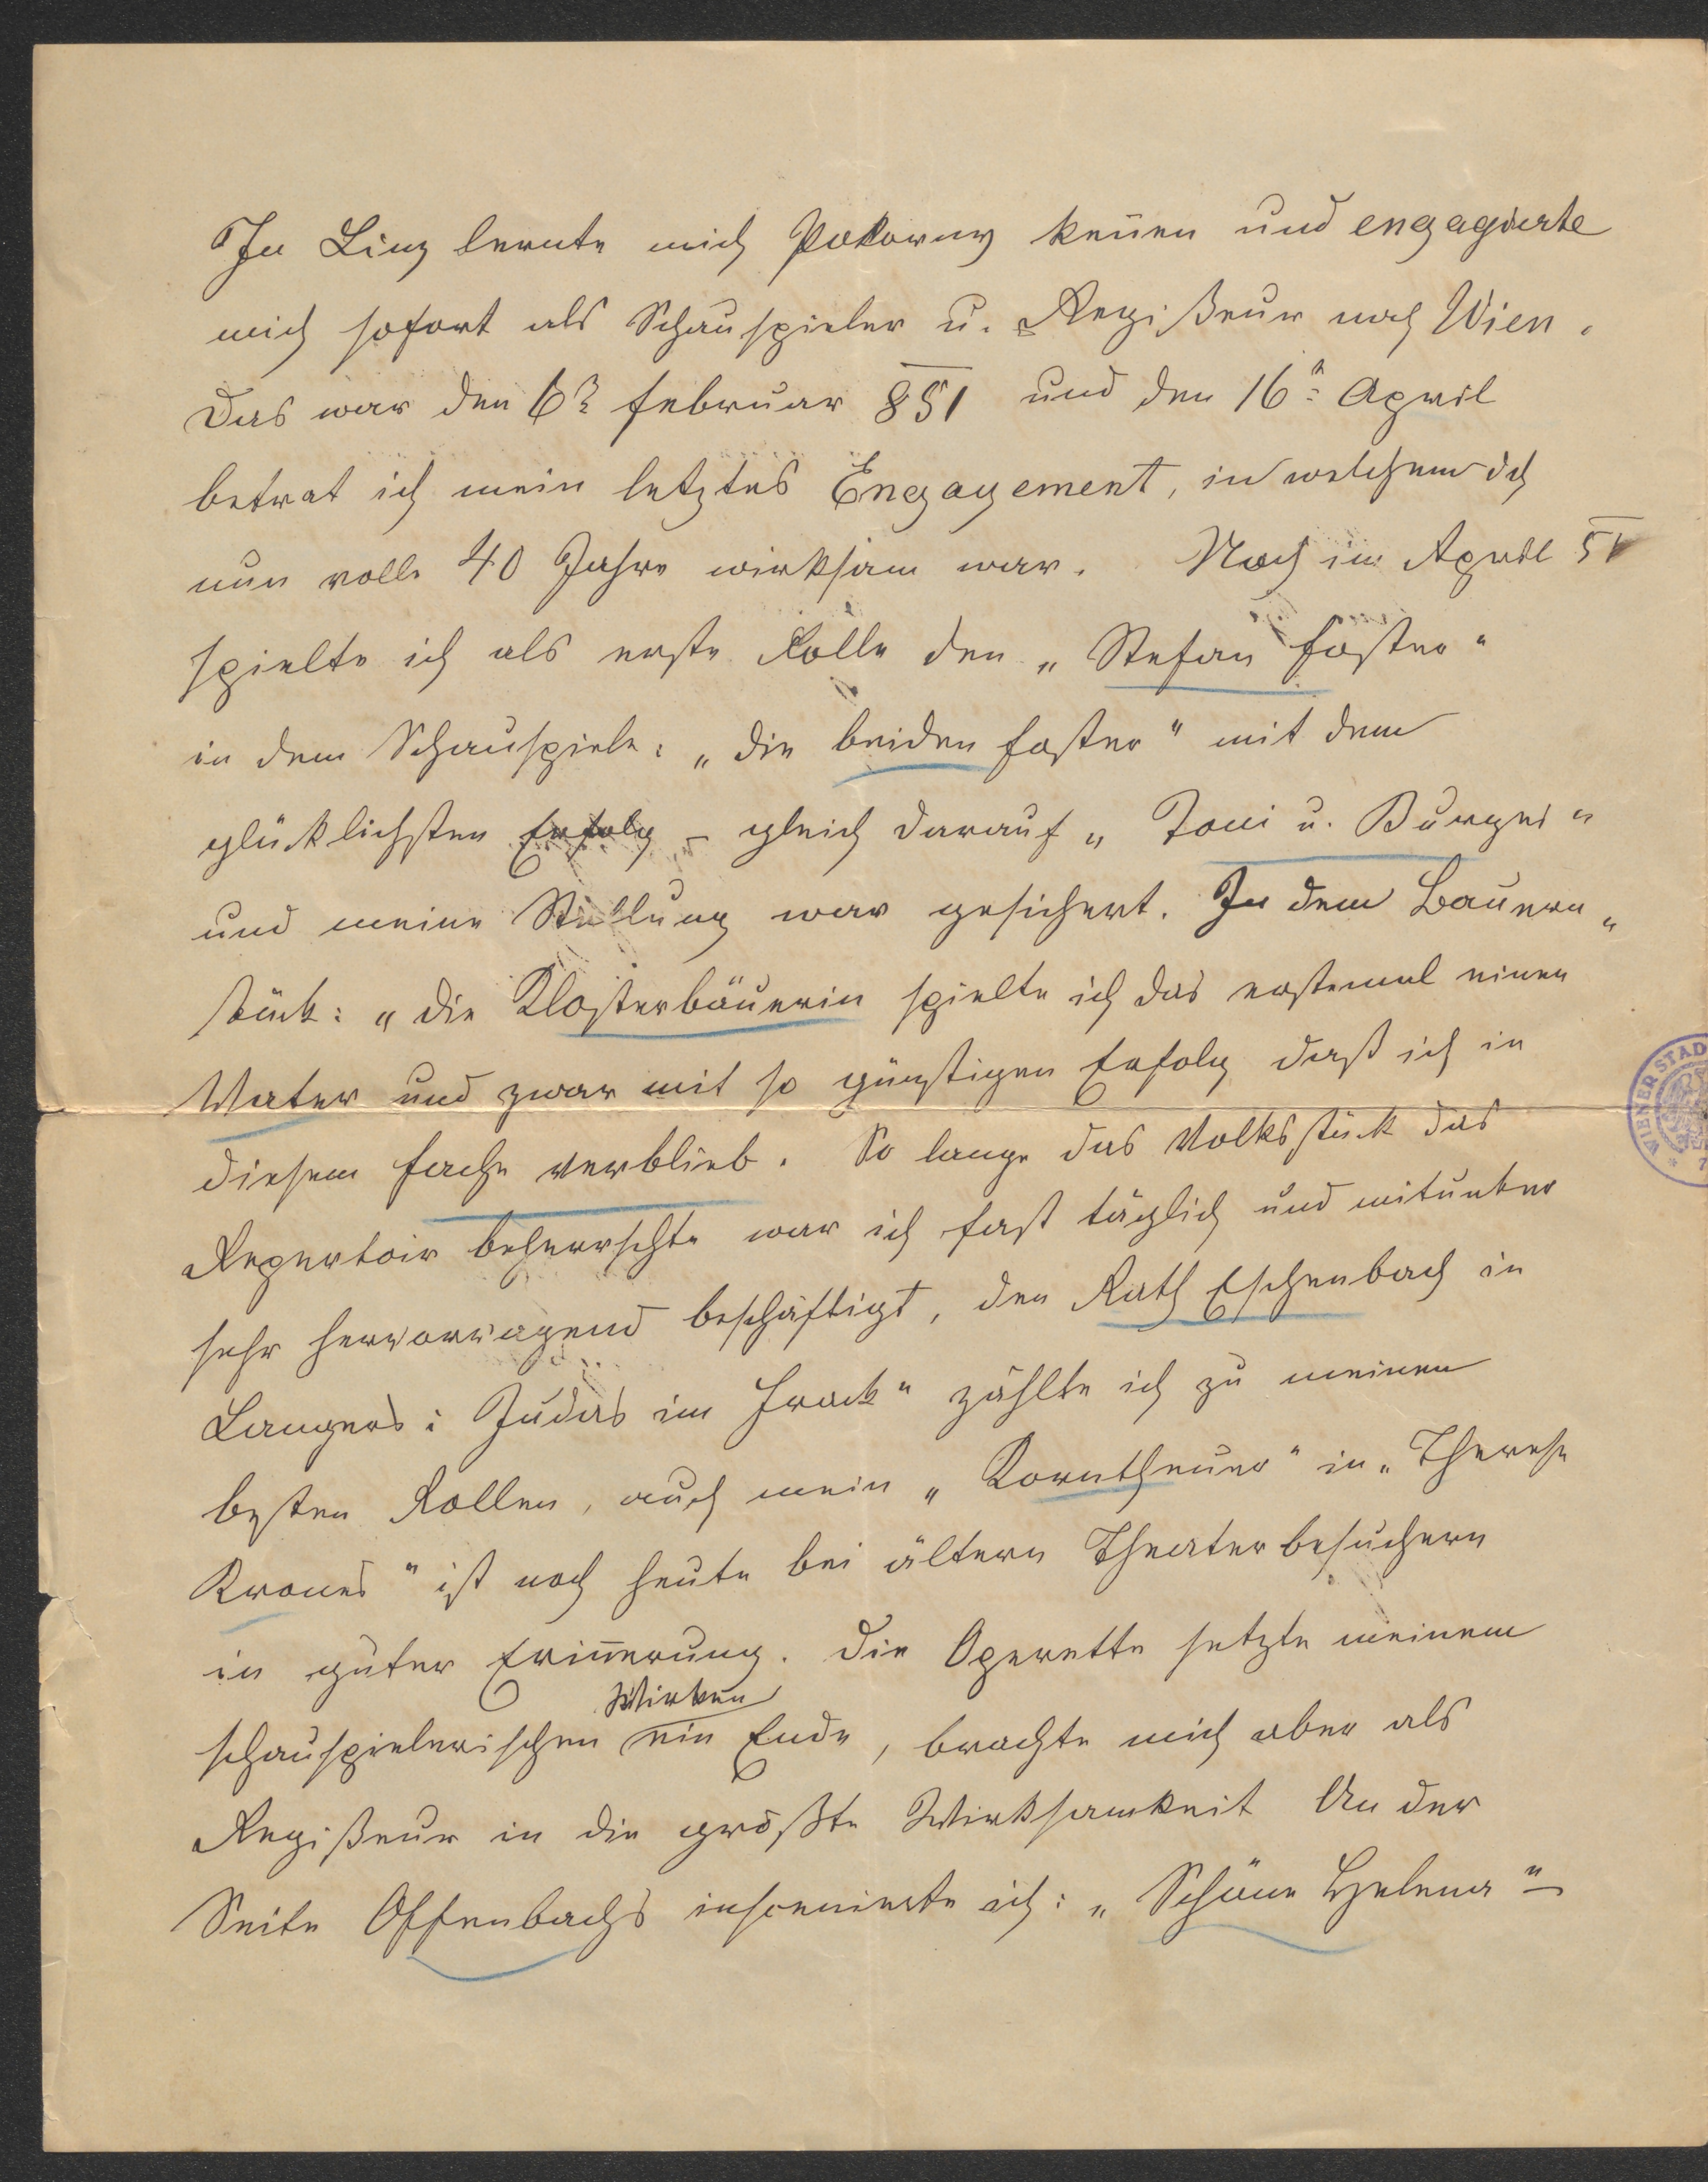 In Linz lernte mich Pokorny keñen und engagierte
mich sofort als Schauspieler u. Regißeur nach Wien.
Das war den 6t Februar 851 und den 16t April
betrat ich mein letztes Engagement, in welchem ich
nun volle 40 Jahre wirksam war. Noch im April 51
spielte ich als erste Rolle den „Stefan Foster"
in dem Schauspiele: „die beiden Foster" mit dem
glücklichsten Erfolg – gleich darauf „Toni u. Burgei"
und meine Stellung war gesichert. In dem Bauern„
stück: „die Klosterbäuerin spielte ich das erstemal einen
Vater und zwar mit so günstigen Erfolg daß ich in
diesem Fache verblieb. So lange das Volksstück das
Repertoir beherrschte war ich fast täglich und mitunter
sehr hervorragend beschäftigt, den Rath Eschenbach in
Langers: Judas im Frack" zählte ich zu meinen
besten Rollen, auch mein „Korntheuer" in „Therese
Krones" ist noch heute bei ältern Theaterbesuchern
in guter Eriñerung. Die Operette setzte meinem
Wirken
schauspielerischen ein Ende, brachte mich aber als
Regißeur in die größte Wirksamkeit An der
Seite Offenbachs inscenierte ich: „Schöne Helena" –
WIENER STAD